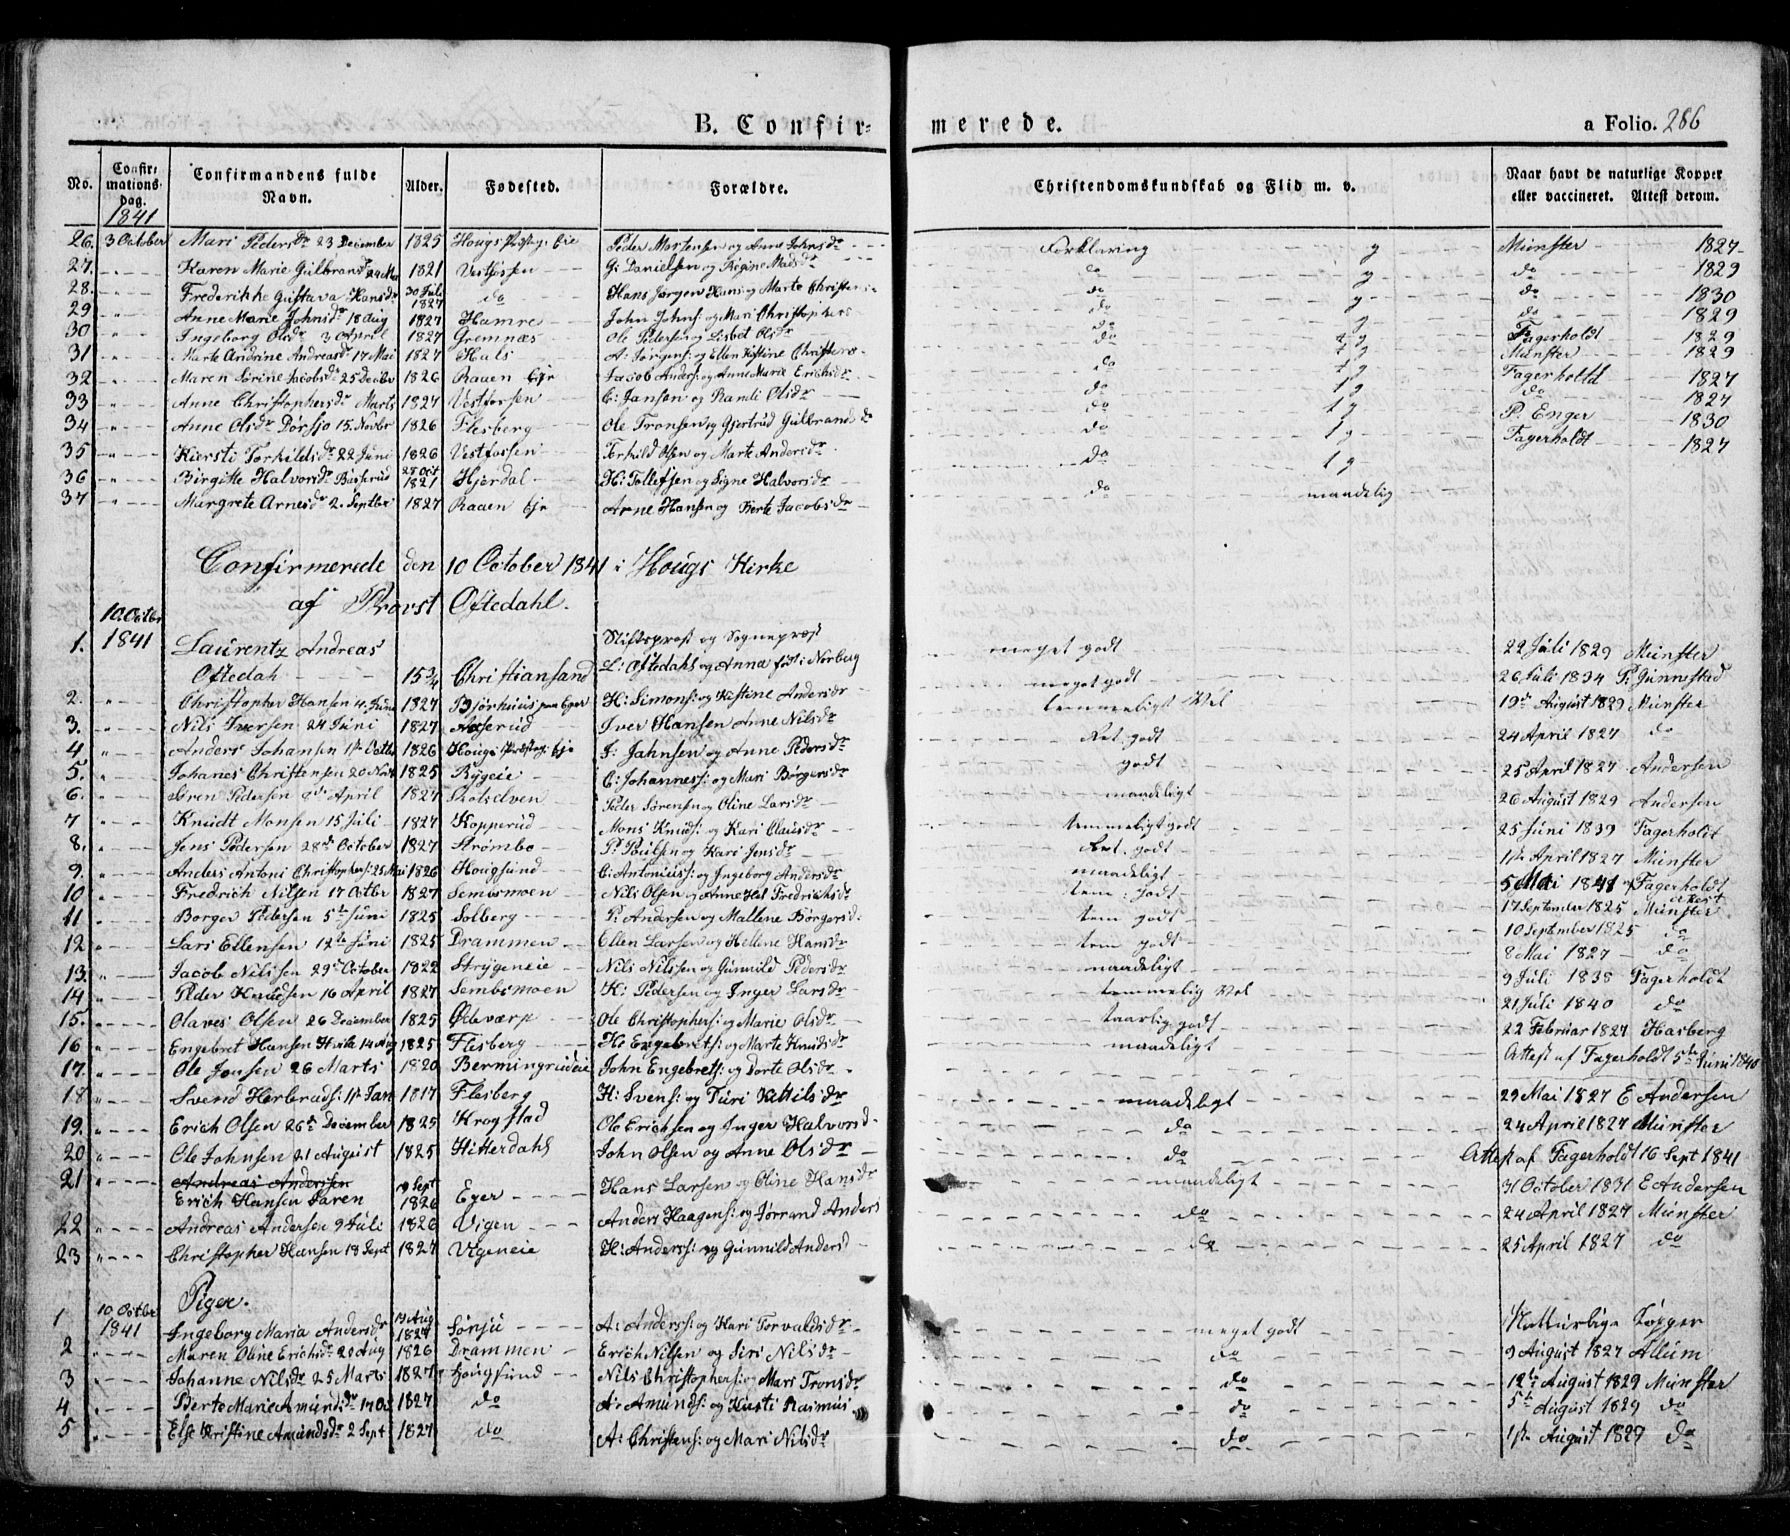 B. Confir- merede. a Folio. 286
No. Confirmations- dag. Confirmandens fulde Navn. Alder. Fødested. Forældre. Christendomskundskab og Flid m. v. Naar havt de naturlige Kopper eller vaccineret. Attest derom.
1841
26. 3 October Mari Pedersdr 23 December 1825 Hougs Præsteg: Eie Peder Mortensen og Anne Johnsdr Forklaring g Münster 1827
27. " Karen Marie Gulbransdr 24 Mai 1821 Vestfossen G: Danielsen og Regine Madsdr do g do 1829
28. " Frederikke Gustava Hansdr 30 Juli 1827 do Hans Jørgen Hans: og Marte Christens: do g do 1830
29 " Anne Marie Johnsdr 18 Aug 1827 Hamre John Johns: og Mari Christophers do g do 1829
30 " Ingeborg Olsdr 3 April 1827 Gremnæs Ole Pedersen og Lisbet Olsdr do Fagerholdt 1829
31 " Marte Andrine Andreasdr 17 Mai 1827 Hals A: Jørgens: og Ellen Kistine Christens: Münster 1829
32 " Maren Sørine Jacobsdr 25 Decbr 1826 Raaen Eje Jacob Anders: og Anne Marie Erichsdr do Fagerholtd 1827
33 " Anne Christophersdr Marts 1827 Vestfossen C: Jansen og Randi Olsdr do do 1827
34 " Anne Olsdr Dørsjo 15 Novbr 1826 Flesberg Ole Tronsen og Gjertrud Gulbrandsdr do P. Enger 1830
35 " Kiersti Torkildsdr 22 Juni 1826 Vestfossen Torkild Olsen og Marte Andersdr do Fagerholdt 1827
36 " Birgitte Halvorsdr Børserud 28 Oct 1821 Hjerdal H: Tollefsen og Signe Halvorsdr do
37 " Margrete Arnesdr 2. Septbr 1827 Raaen Eje Arne Hansen og Berte Jacobsdr do maadelig
Confirmerede den 10 October 1841 i Hougs Kirke
af Provst Oftedahl.
10. Octbr
1. 1841 Laurentz Andreas Stiftsprost og Sognepræst meget godt 22 Juli 1829 Münster
Oftedah 15 3/4 Christiansand L: Oftedahl og Anna født i Norberg
2. " Christopher Hansen 4. Juni 1827 Bjørshuus paa Eger H: Simons: og Kistine Andersdr meget godt 26 Juli 1834 P: Gunnestad
3. " Nils Iversen 24 Juni 1827 Aaserud Iver Hansen Anne Nilsdr temmeligt Vel 19de August 1829 Münster
4 " Anders Johansen 1ste Octbr 1826 Hougs Præsteg: Eje J: Jahnsen og Anne Pedersdr Ret godt 24 April 1827 do
5. " Johanes Christensen 20 Novb 1825 Rygeie C: Johanness: og Mari Børgersdr godt 25 April 1827 Andersen
6. " Søren Pedersen 9de April 1827 Skotselven Peder Sørensen og Oline Larsdr maadeligt 26 August 1829 Andersen
7 " Knudt Monsen 15 Juli 1827 Kopperud Mons Knuds: og Kari Clausdr temmeligt godt 25 Juni 1839 Fagerholdt
8. " Jens Pedersen 28de October 1827 Strømbo P: Poulsen og Kari Jensdr Ret godt 1ste April 1827 Münster
9. " Anders Antoni Christophers: 25 Mai 1826 Hougsund C: Antonius: og Ingeborg Andersdr maadeligt 5 Mai 1841 Fagerholdt
10 " Fredrich Nilsen 17 Octbr 1827 Sembsmoen Nils Olsen og Anne Hel Fredriksdr tem: godt 17 September 1825 Münster
11 " Borger Pedersen 5te Juni 1825 Solberg P: Andersen og Mallene Børgersd: tem godt 10 September 1825 do
12 " Lars Ellensen 12te Juni 1825 Drammen Ellen Larsen og Hellene Hansdr tem godt 8 Mai 1827 do
13. " Jacob Nilssen 29de October 1822 Strygeneie Nils Nilssen og Gunnild Pedersdr maadeligt 9 Juli 1838 Fagerholdt
14 " Peder Knudsen 16 April 1827 Sembsmoen K: Pedersen og Inger Larsdr temmelig Vel 21 Juli 1840 do
15. " Olaves Olsen 26 December 1825 Ødeværp Ole Christophers: og Marie Olsdr taarlig godt 22 Februar 1827 Hasberg
16 " Engebret Hansen Hvila 14 Aug 1825 Flesberg Hs Engebrets: og Marte Knudsdr maadeligt Attest af Fagerholdt 5te Juni 1840
17. " Ole Jonsen 26 Marts 1820 Bermingrudeie John Engebrets: og Dorte Olsdr
18 " Svend Herbrads: 1ste Jan 1817 Flesberg H: Svens: og Turi Kittilsdr maadeligt 29 Mai 1827 E Andersen
19. " Erich Olsen 26de December 1825 Krogstad Ole Erichsen og Inger Halvorsd do 24 April 1827 Münster
20 " Ole Johnsen 21 August 1825 Hitterdahl John Olsen og Anne Olsdr do Attest af Fagerholdt 16 Sept 1841
21 " Andreas Andersen
Erich Hansen Saren 19 Sept 1826 Eger Hans Larsen og Oline Hansdr maadeligt 31 October 1831 E Andersen
22 " Andreas Andersen 9 Juli 1826 Vigen Anders Haagens: og Jørrand Anders do 24 April 1827 Münster
23 " Christopher Hansen 18 Sept 1827 Vigeneie H: Anderss: og Gunnild Andersd do 25 April 1827 do
Piger.
1 10 Octbr 1841 Ingeborg Maria Andersdr 19 Aug 1827 Sørju A: Anderss: og Kari Torvaldsdr meget godt Naturlige Kopper
2 " Maren Oline Erichsdr 20 Aug 1826 Drammen Erich Nilsen og Siri Nilsdr do 9 August 1827 Allum
3 " Johanne Nilsdr 25 Marts 1827 Hougsund Nils Christophers: og Mari Tronsdr do 12te August 1829 Münster
4 " Berte Marie Amundsdr 1827 do A: Amunds: og Kisti Rasmus do 5te August 1829 do
5 " Else Kristine Amundsdr 2 Sept 1827 do A: Christens: og Mari Nilsdr do 1ste August 1827 do